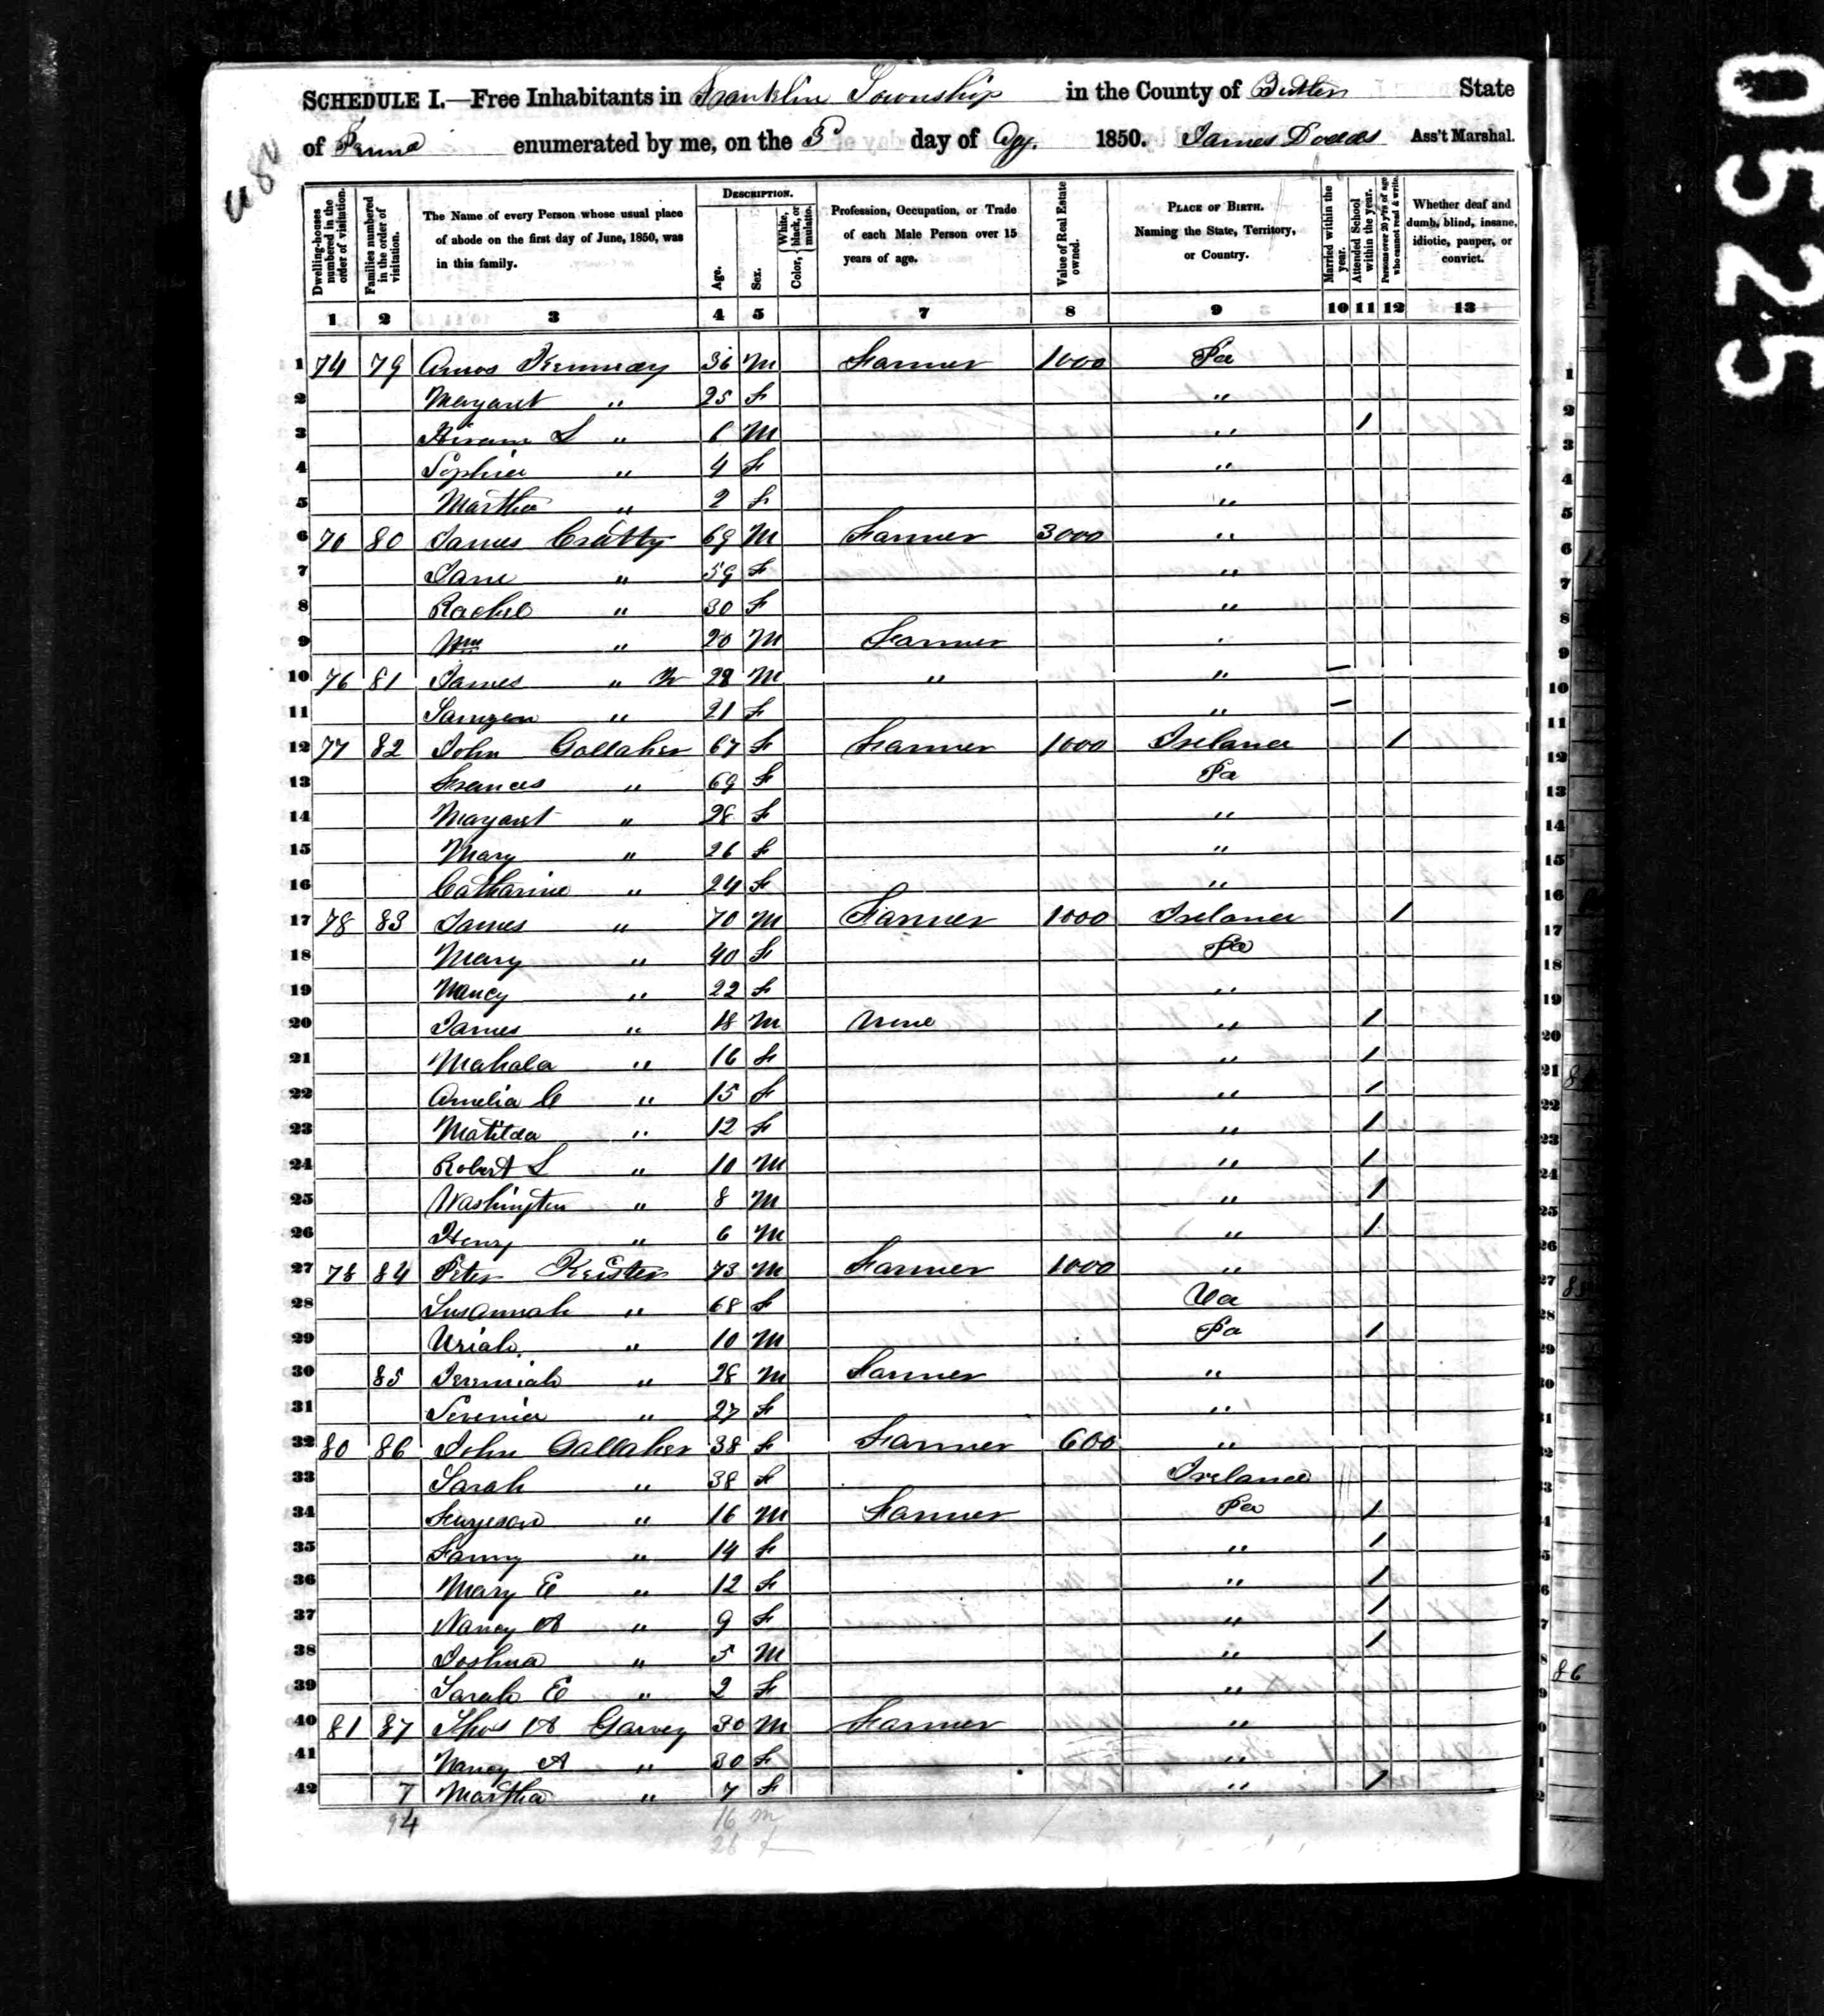 0525
SCHEDULE I.—Free Inhabitants in Franklin Township in the County of Butler State
of Penna enumerated by me, on the 3d day of Agt. 1850. James Dodds Ass't Marshal.
Dwelling-houses numbered in the order of visitation.
Families numbered in the order of visitation.
The Name of every Person whose usual place of abode on the first day of June, 1850, was in this family.
DESCRIPTION.
Age.
Sex.
Color, White, black, or mulatto.
Profession, Occupation, or Trade of each Male Person over 15 years of age.
Value of Real Estate owned.
PLACE OF BIRTH. Naming the State, Territory, or Country.
Married within the year.
Attended School within the year.
Persons over 20 y'rs of age who cannot read & write.
Whether deaf and dumb, blind, insane, idiotic, pauper, or convict.
1 2 3 4 5 7 8 9 10 11 12 13
1 74 79 Amos Kennedy 36 M Farmer 1000 Pa
2 Margaret " 25 F "
3 Hiram L " 6 M " /
4 Sophia " 4 F "
5 Martha " 2 F "
6 70 80 James Cratty 69 M Farmer 3000 "
7 Jane " 59 F "
8 Rachel " 30 F "
9 Wm " 20 M Farmer "
10 76 81 James " Jr 28 M " " /
11 " 21 F " /
12 77 82 John Gallaher 67 F Farmer 1000 Ireland /
13 Frances " 69 F Pa
14 Margaret " 28 F "
15 Mary " 26 F "
16 Catharine " 24 F "
17 78 83 James " 70 M Farmer 1000 Ireland /
18 Mary " 40 F Pa
19 Nancy " 22 F "
20 James " 18 M None " /
21 Mahala " 16 F " /
22 Amelia C " 15 F " /
23 Matilda " 12 F " /
24 Robert L " 10 M " /
25 Washington " 8 M " /
26 Henry " 6 M " /
27 78 84 Peter Keister 73 M Farmer 1000 "
28 Susannah " 68 F Va
29 Uriah " 10 M Pa /
30 85 Jeremiah " 28 M Farmer "
31 " 27 F "
32 80 86 John Gallaher 38 F Farmer 600 "
33 Sarah " 38 F Ireland
34 Furgeson " 16 M Farmer Pa /
35 Fanny " 14 F " /
36 Mary E " 12 F " /
37 Nancy A " 9 F " /
38 Joshua " 5 M " /
39 Sarah E " 2 F "
40 81 87 Thos A Garvey 30 M Farmer "
41 Nancy A " 30 F "
42 7 Martha " 7 F " /
94 16 m
26 f